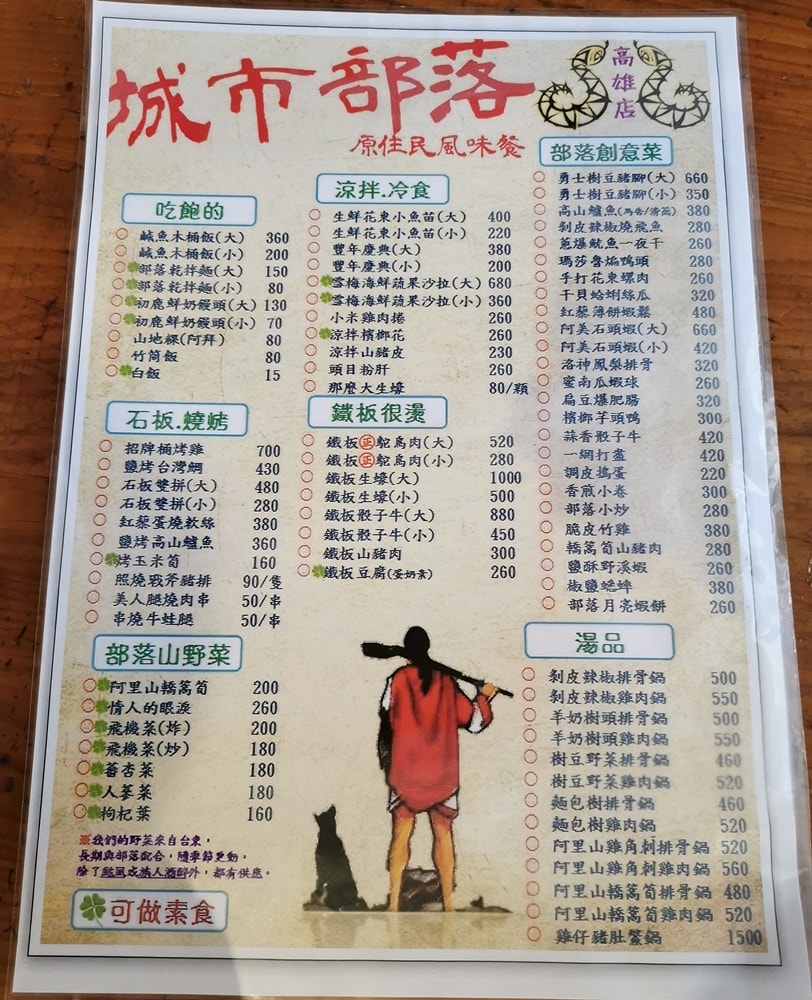 城市部落
高雄店
原住民風味餐
吃飽的
鹹魚木桶飯(大) 360
鹹魚木桶飯(小) 200
部落乾拌麵(大) 150
部落乾拌麵(小) 80
初鹿鮮奶饅頭(大) 130
初鹿鮮奶饅頭(小) 70
山地粿(阿拜) 80
竹筒飯 80
白飯 15
石板.燒烤
招牌桶烤雞 700
鹽烤台灣鯛 430
石板雙拼(大) 480
石板雙拼(小) 280
紅藜蛋燒軟絲 380
鹽烤高山鱸魚 360
烤玉米筍 160
照燒戰斧豬排 90/隻
美人腿燒肉串 50/串
串燒牛蛙腿 50/串
部落山野菜
阿里山轎篙筍 200
情人的眼淚 260
飛機菜(炸) 200
飛機菜(炒) 180
蕃杏菜 180
人蔘菜 180
枸杞葉 160
※我們的野菜來自台東，
長期與部落配合，隨季節更動。
除了颱風或族人酒醉外，都有供應。
可做素食
涼拌.冷食
生鮮花東小魚苗(大) 400
生鮮花東小魚苗(小) 220
豐年慶典(大) 380
豐年慶典(小) 200
雪梅海鮮蔬果沙拉(大) 680
雪梅海鮮蔬果沙拉(小) 360
小米雞肉捲 260
涼拌檳榔花 260
涼拌山豬皮 230
頭目粉肝 260
那麼大生蠔 80/顆
鐵板很燙
鐵板正鴕鳥肉(大) 520
鐵板正鴕鳥肉(小) 280
鐵板生蠔(大) 1000
鐵板生蠔(小) 500
鐵板骰子牛(大) 880
鐵板骰子牛(小) 450
鐵板山豬肉 300
鐵板豆腐(蛋奶素) 260
部落創意菜
勇士樹豆豬腳(大) 660
勇士樹豆豬腳(小) 350
高山鱸魚(馬告/清蒸) 380
剝皮辣椒燒飛魚 280
蔥爆魷魚一夜干 260
瑪莎魯焰鴨頭 280
手打花東螺肉 260
干貝蛤蜊絲瓜 320
紅藜薄餅蝦鬆 480
阿美石頭蝦(大) 660
阿美石頭蝦(小) 420
洛神鳳梨排骨 320
蜜南瓜蝦球 260
扁豆爆肥腸 320
檳榔芋頭鴨 300
蒜香骰子牛 420
一網打盡 420
調皮搗蛋 220
香煎小卷 300
部落小炒 280
脆皮竹雞 380
轎篙筍山豬肉 280
鹽酥野溪蝦 260
椒鹽蟋蟀 380
部落月亮蝦餅 260
湯品
剝皮辣椒排骨鍋 500
剝皮辣椒雞肉鍋 550
羊奶樹頭排骨鍋 500
羊奶樹頭雞肉鍋 550
樹豆野菜排骨鍋 460
樹豆野菜雞肉鍋 520
麵包樹排骨鍋 460
麵包樹雞肉鍋 520
阿里山雞角刺排骨鍋 520
阿里山雞角刺雞肉鍋 560
阿里山轎篙筍排骨鍋 480
阿里山轎篙筍雞肉鍋 520
雞仔豬肚鱉鍋 1500